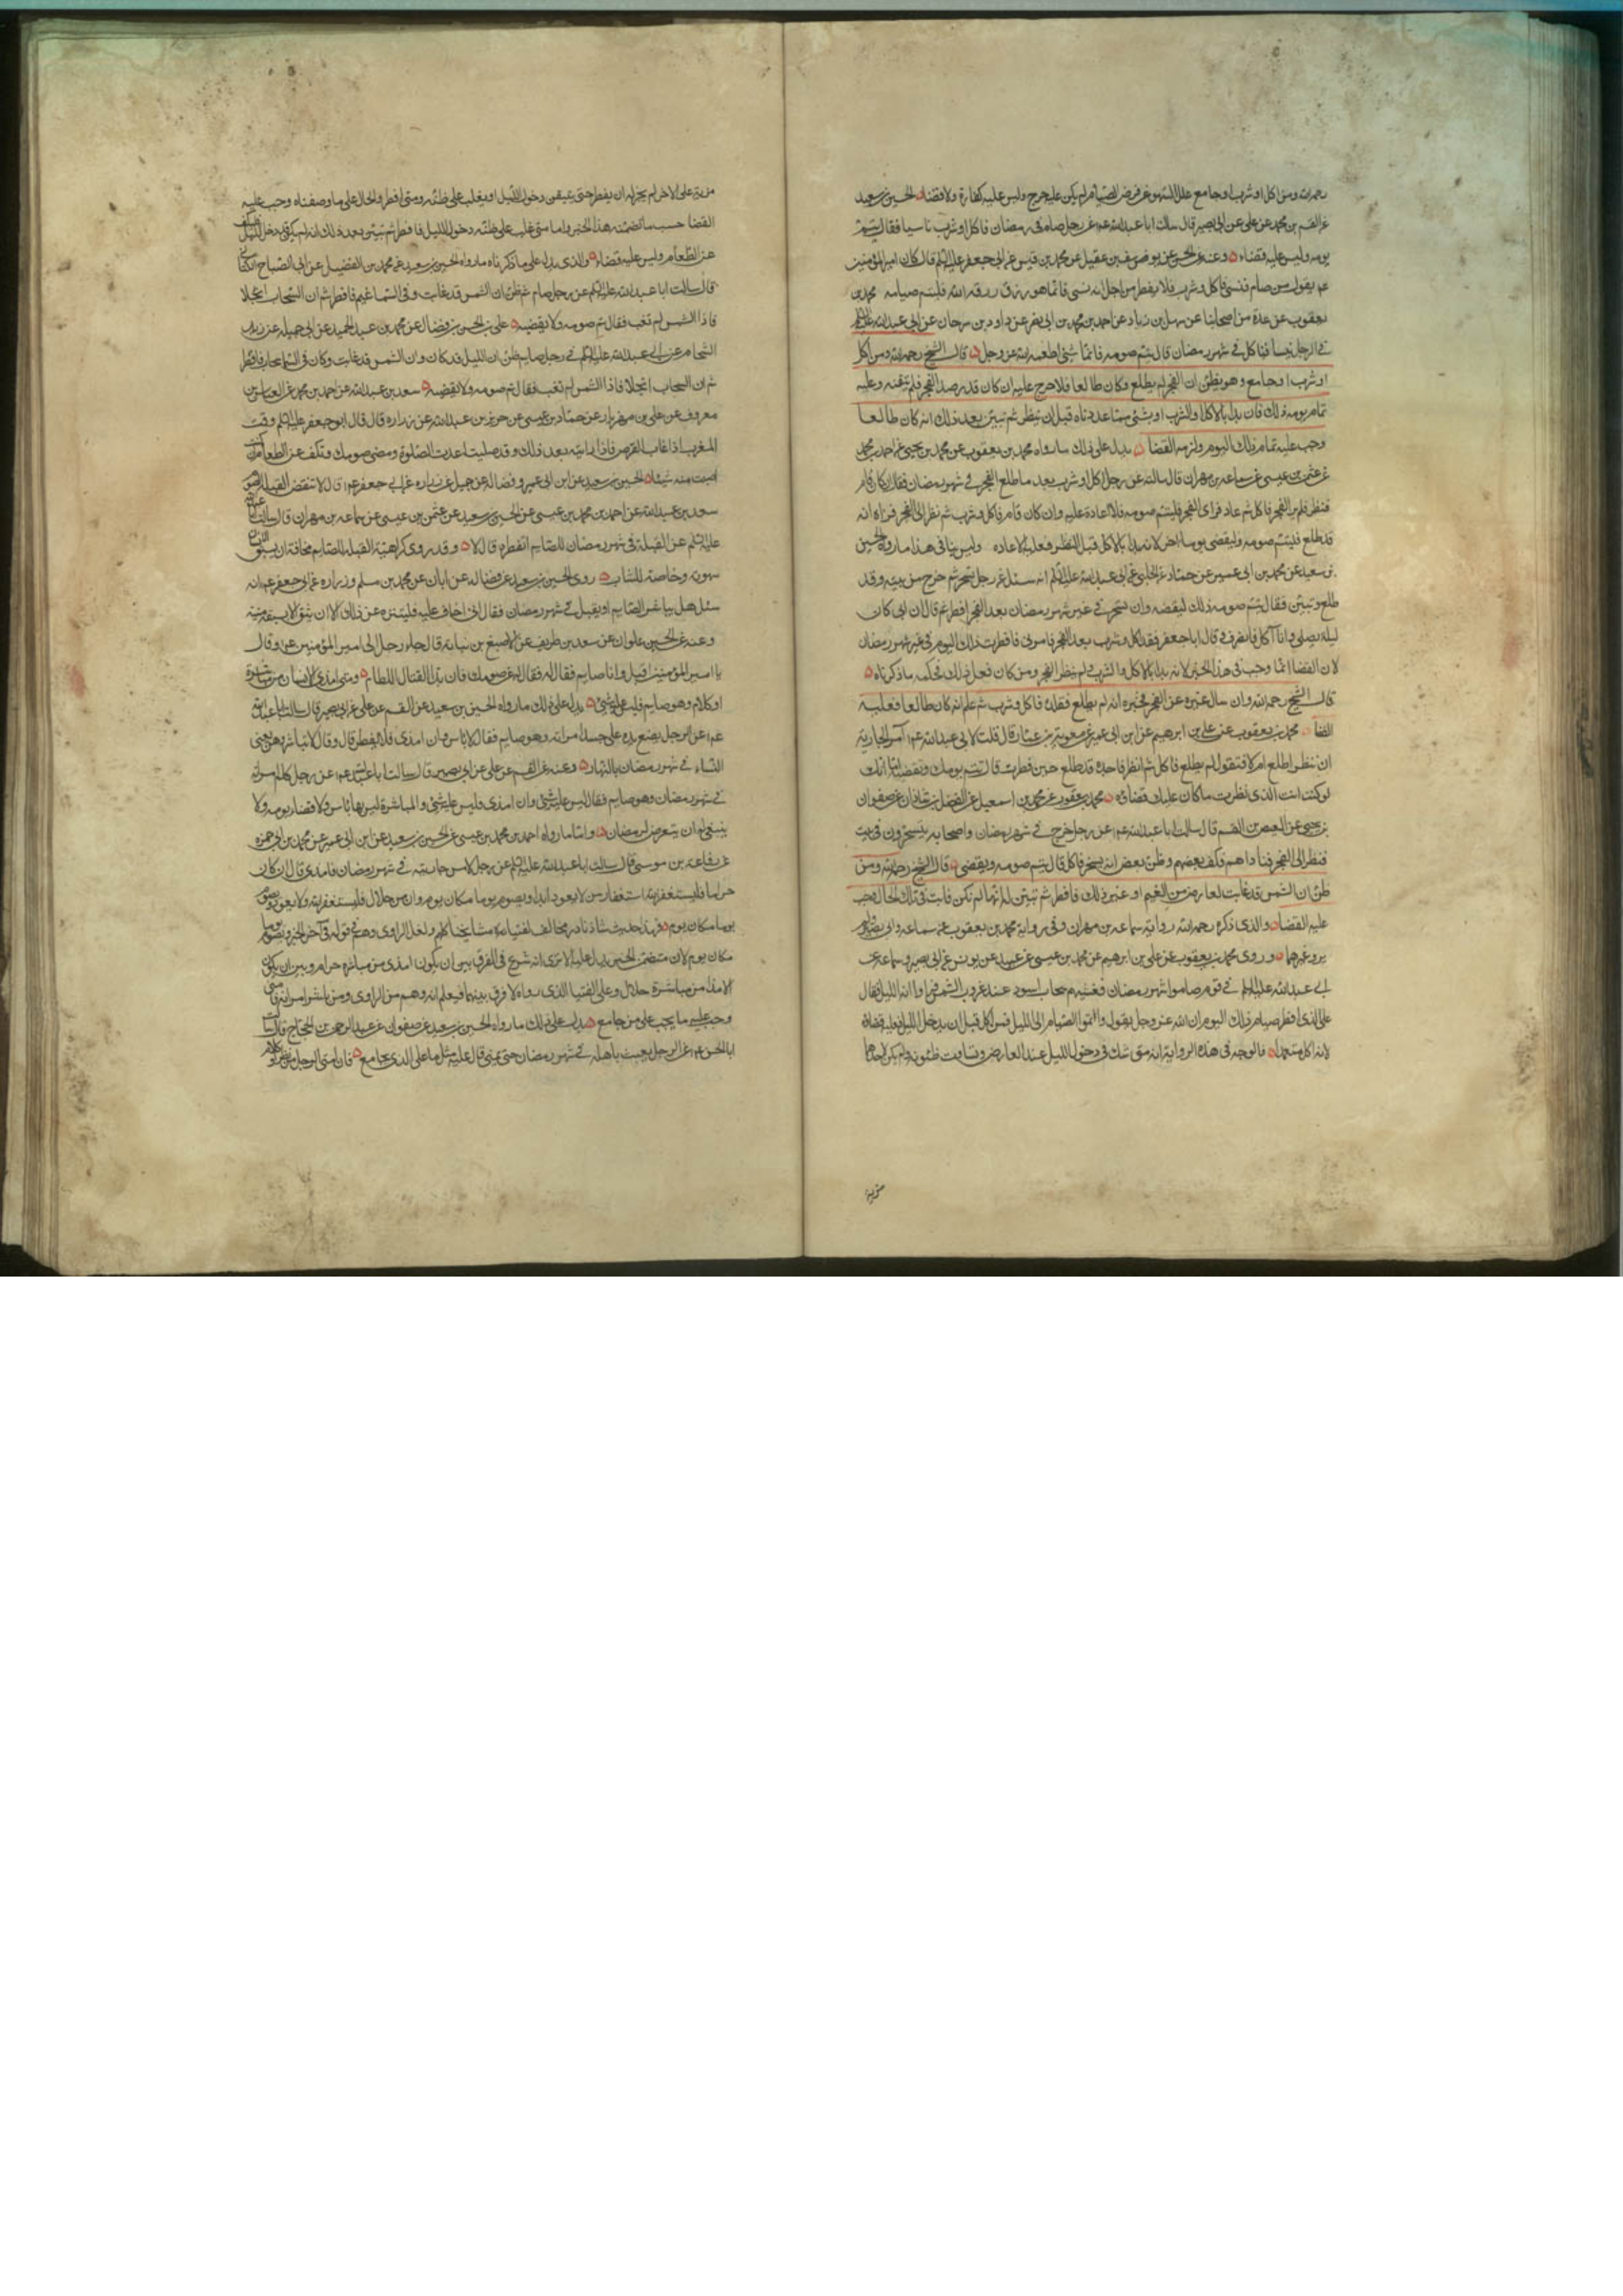 رحمه الله ومن اكل او شرب او جامع على السهو عن فرض الصيام لم يكن عليه حرج وليس عليه كفارة ولا قضاء الحسين بن سعيد
عن القسم بن محمد عن علي عن ابي بصير قال سالت ابا عبد الله عم عن رجل صام في رمضان فاكل او شرب ناسيا فقال يتم
يومه وليس عليه قضاء وعنه عن الحسن عن يوسف بن عقيل عن محمد بن قيس عن ابي جعفر عليه السلم قال كان امير المؤمنين
عم يقول من صام فنسي فاكل وشرب فلا يفطر من اجل انه نسي فانما هو رزق رزقه الله فليتم صيامه محمد بن
يعقوب عن عدة من اصحابنا عن سهل بن زياد عن احمد بن محمد بن ابي نصر عن داود بن سرحان عن ابي عبد الله عليه السلم
في الرجل ينسا فياكل في شهر رمضان قال يتم صومه فانما شئ اطعمه الله عز وجل قال الشيخ رحمه الله ومن اكل
او شرب او جامع وهو يظن ان الفجر لم يطلع وكان طالعا فلا حرج عليه ان كان قد رصد الفجر فلم يتبينه وعليه
تمام يومه ذلك فان بدا بالاكل والشرب او بشئ مما عددناه قبل ان ينظر ثم تبين بعد ذلك انه كان طالعا
وجب عليه تمام ذلك اليوم ولزمه القضا يدل على ذلك ما رواه محمد بن يعقوب عن محمد بن يحيى عن احمد بن محمد
عن عثمن بن عيسى عن سماعه بن مهران قال سالته عن رجل اكل او شرب بعد ما طلع الفجر في شهر رمضان فقال ان كان قام
فنظر فلم ير الفجر فاكل ثم عاد فراى الفجر فليتم صومه فلا اعادة عليه وان كان قام فاكل وشرب ثم نظر الى الفجر فراه انه
قد طلع فليتم صومه وليقضي يوما اخر لانه بدا بالاكل قبل النظر فعليه الاعاده وليس ينافي هذا ما رواه الحسين
بن سعيد عن محمد بن ابي عمير عن حماد عن الحلبي عن ابي عبد الله عليه السلم انه سئل عن رجل تسحر ثم خرج من بيته وقد
طلع وتبين فقال يتم صومه ذلك ليقضه وان تسحر في غير شهر رمضان بعد الفجر افطر ثم قال ان ابي كان
ليلة يصلي وانا آكل فانصرف فقال اما جعفر فقد اكل وشرب بعد الفجر فامرني فافطرت ذلك اليوم في غير شهر رمضان
لان القضا انما وجب في هذا الخبر لانه بدا بالاكل والشرب ولم ينظر الفجر ومن كان فعل ذلك فحكمه ما ذكرناه
قال الشيخ رحمه الله وان سال غيره عن الفجر فخبره انه لم يطلع فقلده فاكل وشرب ثم علم انه كان طالعا فعليه
القضا محمد بن يعقوب عن علي بن ابرهيم عن ابن ابي عمير عن معوية بن عمار قال قلت لابي عبد الله عم آمر الجارية
ان تنظر اطلع ام لا فتقول لم يطلع فاكل ثم انظر فاجده قد طلع حين نظرت قال تتم يومك وتقضيه اما انك
لو كنت انت الذي نظرت ما كان عليك قضاؤه محمد بن يعقوب عن محمد بن اسمعيل عن الفضل بن شاذان عن صفوان
بن يحيى عن العيص بن القسم قال سالت ابا عبد الله عم عن رجل خرج في شهر رمضان واصحابه يتسحرون في بيت
فنظر الى الفجر فناداهم فكف بعضهم وظن بعض انه يسخر فاكل قال يتم صومه ويقضي قال الشيخ رحمه الله ومن
ظن ان الشمس قد غابت لعارض من الغيم او غير ذلك فافطر ثم تبين له انها لم تكن غابت في تلك الحال وجب
عليه القضا والذي ذكره رحمه الله رواية سماعه بن مهران وفي رواية محمد بن يعقوب عن سماعه وابي بصير
وروى محمد بن يعقوب عن علي بن ابرهيم عن محمد بن عيسى بن عبيد عن يونس عن ابي بصير وسماعه عن
ابي عبد الله عليه السلم في قوم صاموا شهر رمضان فغشيهم سحاب اسود عند غروب الشمس فراوا انه الليل فقال
على الذي افطر صيام ذلك اليوم ان الله عز وجل يقول واتموا الصيام الى الليل فمن اكل قبل ان يدخل الليل فعليه قضاه
لانه اكل متعمدا فالوجه في هذه الرواية انه متى شك في دخول الليل عند العارض وتساوت ظنونه ولم يكن لاحدهما
مزية
مزية على الاخر لم يجز له ان يفطر حتى يتيقن دخول الليل او يغلب على ظنه ومتى افطر والحال على ما وصفناه وجب عليه
القضا حسب ما تضمنه هذا الخبر واما متى غلب على ظنه دخول الليل فافطر ثم تبين بعد ذلك انه لم يكن قد دخل الليل
عن الطعام وليس عليه قضاء والذي يدل على ما ذكرناه ما رواه الحسين بن سعيد عن محمد بن الفضيل عن ابي الصباح الكناني
قال سالت ابا عبد الله عليه السلم عن رجل صام ثم ظن ان الشمس قد غابت وفي السما غيم فافطر ثم ان السحاب انجلا
فاذا الشمس لم تغب فقال تم صومه ولا يقضيه علي بن الحسن بن فضال عن محمد بن عبد الحميد عن ابي جميله عن زيد
الشحام عن ابي عبد الله عليه السلم في رجل صايم ظن ان الليل قد كان وان الشمس قد غابت وكان في السما سحاب فافطر
ثم ان السحاب انجلا فاذا الشمس لم تغب فقال تم صومه ولا يقضيه سعد بن عبد الله عن احمد بن محمد عن العباس بن
معروف عن علي بن مهزيار عن حماد بن عيسى عن حريز بن عبد الله عن زراره قال قال ابو جعفر عليه السلم وقت
المغرب اذا غاب القرص فاذا رايته بعد ذلك وقد صليت اعدت الصلوة ومضى صومك وتكف عن الطعام ان كنت
اصبت منه شيئا الحسين بن سعيد عن ابن ابي عمير وفضاله عن جميل عن زراره عن ابي جعفر عم قال لا تنقض القبلة الصوم
سعد بن عبد الله عن احمد بن محمد بن عيسى عن الحسين بن سعيد عن عثمن بن عيسى عن سماعه بن مهران قال سالت ابا عبد الله
عليه السلم عن القبلة في شهر رمضان للصايم اتفطره قال لا وقد روى كراهية القبلة للصايم مخافة ان يسبق
شهوته وخاصة للشاب روى الحسين بن سعيد عن فضاله عن ابان عن محمد بن مسلم وزراره عن ابي جعفر عم انه
سئل هل يباشر الصايم او يقبل في شهر رمضان فقال اني اخاف عليه فليتنزه عن ذلك الا ان يثق الا يسبقه منيه
وعنه عن الحسين بن علوان عن سعد بن طريف عن الاصبغ بن نباته قال جاء رجل الى امير المؤمنين عم وقال
يا امير المؤمنين اقبل وانا صايم فقال له عف صومك فان بدا القتال اللطام ومتى امذى الانسان من مباشرة
او كلام وهو صايم فليس عليه شئ يدل على ذلك ما رواه الحسين بن سعيد عن القسم عن علي عن ابي بصير قال سالت ابا عبد الله
عم عن الرجل يضع يده على جسد امراته وهو صايم فقال لا باس وان امذى فلا يفطر قال وقال لا تباشروهن يعني
النساء في شهر رمضان بالنهار وعنه عن القسم عن علي عن ابي بصير قال سالت ابا عبد الله عم عن رجل كلم امراته
في شهر رمضان وهو صايم فقال ليس عليه شئ وان امذى فليس عليه شئ والمباشرة ليس بها باس ولا قضاء يومه ولا
ينبغي له ان يتعرض لرمضان واما ما رواه احمد بن محمد بن عيسى عن الحسين بن سعيد عن ابن ابي عمير عن محمد بن ابي حمزه
عن رفاعة بن موسى قال سالت ابا عبد الله عليه السلم عن رجل لامس جاريته في شهر رمضان فامذى قال ان كان
حراما فليستغفر الله استغفار من لا يعود ابدا ويصوم يوما مكان يوم وان من حلال فليستغفر الله ولا يعود ويصوم
يوما مكان يوم فهذا حديث شاذ نادر مخالف لفتيا مشايخنا كلهم ولعل الراوي وهم في قوله في آخر الخبر ويصوم يوما
مكان يوم لان متضمن الخبر يدل عليه الا ترى انه شرع في الفرق بين ان يكون امذى من مباشرة حرام وبين ان يكون
الامذا من مباشرة حلال وعلى الفتيا الذي رواه لا فرق بينهما فيعلم انه وهم من الراوي ومن باشر امراته فامنى
وجب عليه ما يجب على من جامع يدل على ذلك ما رواه الحسين بن سعيد عن صفوان عن عبد الرحمن بن الحجاج قال سالت
ابا الحسن عم عن الرجل يعبث باهله في شهر رمضان حتى يمني قال عليه مثل ما على الذي يجامع فان امنى الرجل من نظر او كلام